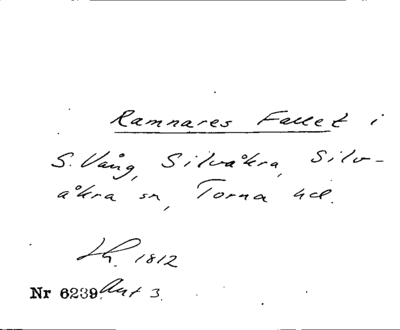 Ramnares Fallet i
S. Vång, Silvåkra, Silv-
åkra sn, Torna hd.
Lh. 1812
Nr 6239. Aut 3.